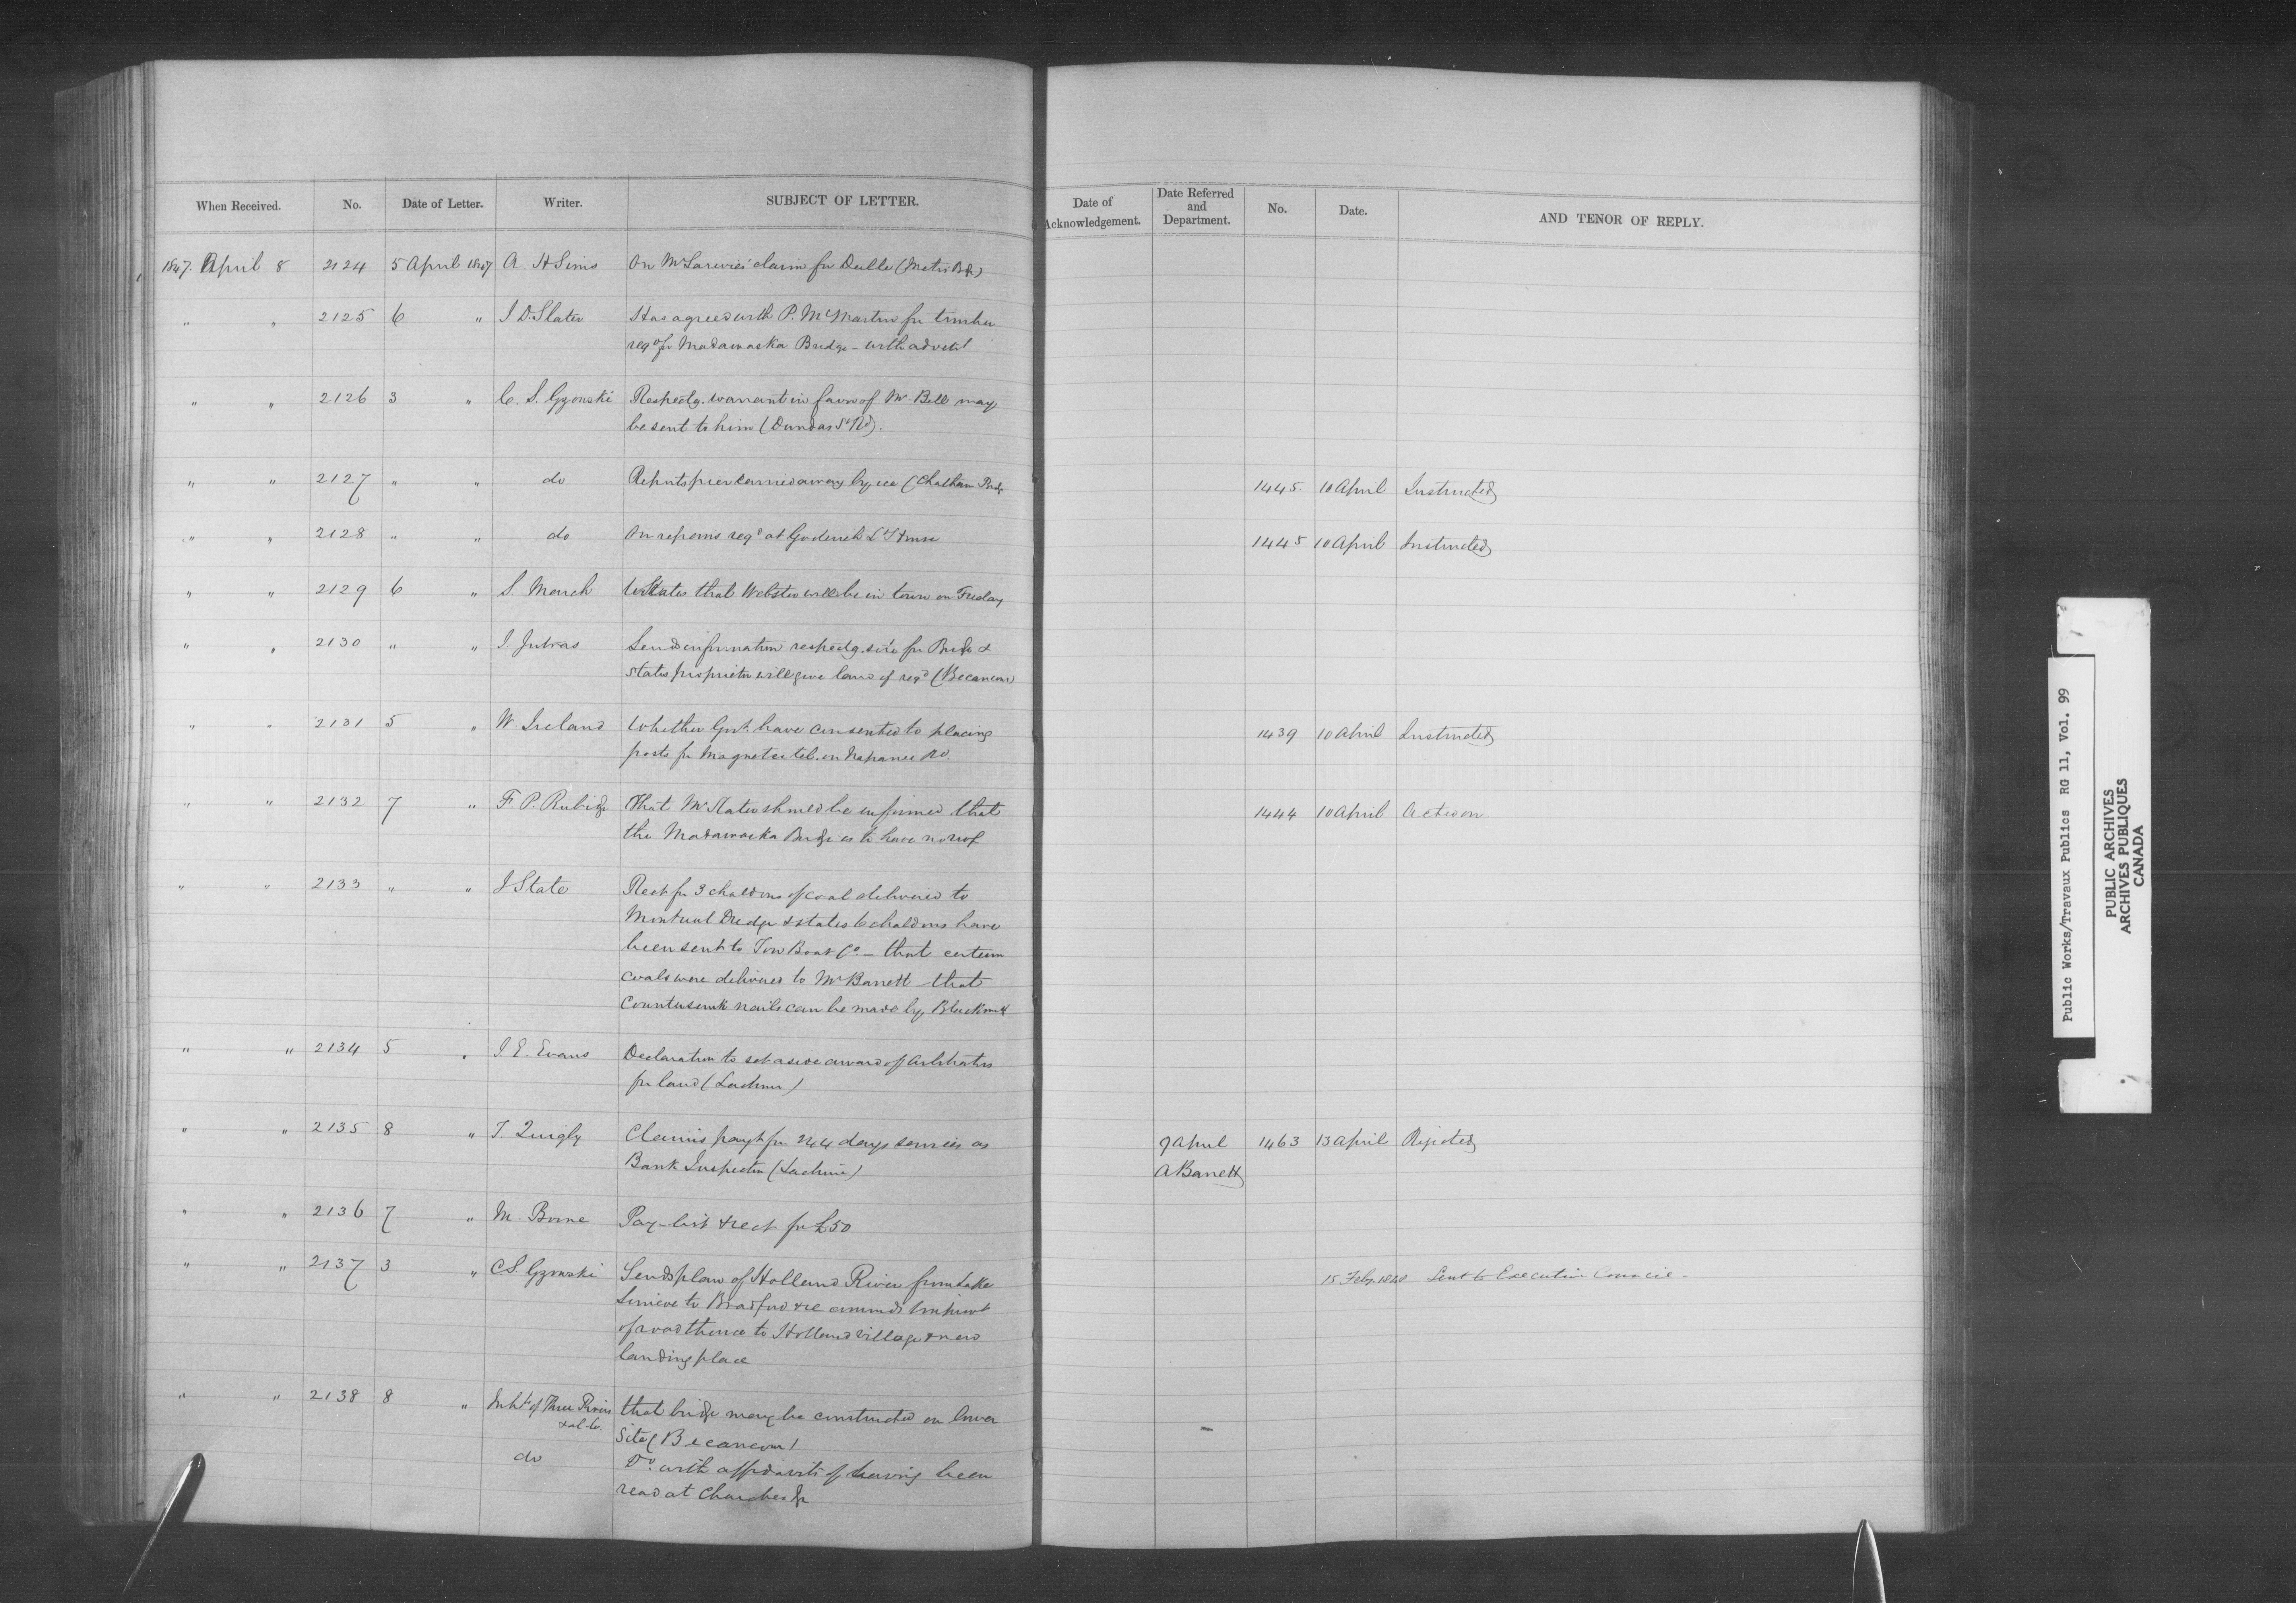 When Received. No. Date of Letter. Writer. SUBJECT OF LETTER. Date of Acknowledgement. Date Referred and Department. No. Date. AND TENOR OF REPLY.
1847. April 8 2124 5 April 1847 A H Sims On claim for
" " 2125 6 " J D. Slater Has agreed with P. McMartin for timber
reqd for Madawaska Bridge - with
" " 2126 3 " C. S. Gzowski Respectg. warrant in favor of Mr Bell may
be sent to him (Dundas St Rd).
" " 2127 " " do Reports pier carried away by ice (Chatham Bridge 1445. 10 April Instructed
" " 2128 " " do On repairs reqd at Goderich Lt House 1445 10 April Instructed
" " 2129 6 " S. States that Webster will be in town on Friday
" " 2130 " " J Jutras Sends information respectg. site for Bridge &
states proprietor will give land if reqd (Becancour)
" " 2131 5 " W. Ireland Whether Govt. have consented to placing 1439 10 April Instructed
posts for Magnetic tel. on Napanee Rd.
" " 2132 7 " F P. Rubidge That Mr Slater should be informed that 1444 10 April Acted on.
the Madawaska Bridge is to have no roof
" " 2133 " " J State Rect for 3 chaldrons of coal delivered to
Montreal Dredge & states 6 chaldrons have
been sent to Tow Boat Co. - that certain
coals were delivered to Mr Barrett - that
Countersunk nails can be made by Blacksmith
" " 2134 5 " J. E. Evans Declaration to set aside award of Arbitrators
for land (Lachine)
" " 2135 8 " T. Quigly Claims payt for 244 days services as 9 April 1463 13 April Rejected
Bank Inspector (Lachine) A Barrett
" " 2136 7 " M. Pay-list & rect for £50
" " 2137 3 " C S. Gzowski Sends plan of Holland River from Lake 15 Feby. 1848 Sent to Executive Council -
Simcoe to Bradford & recommends improvt
of road thence to Holland village & new
landing place
" " 2138 8 " Inhts of Three Rivers that bridge may be constructed on lower
site (Becancour)
do Do. with affidavits of having been
read at Churches &c
Public Works/Travaux Publics RG 11, Vol. 99
PUBLIC ARCHIVES
ARCHIVES PUBLIQUES
CANADA